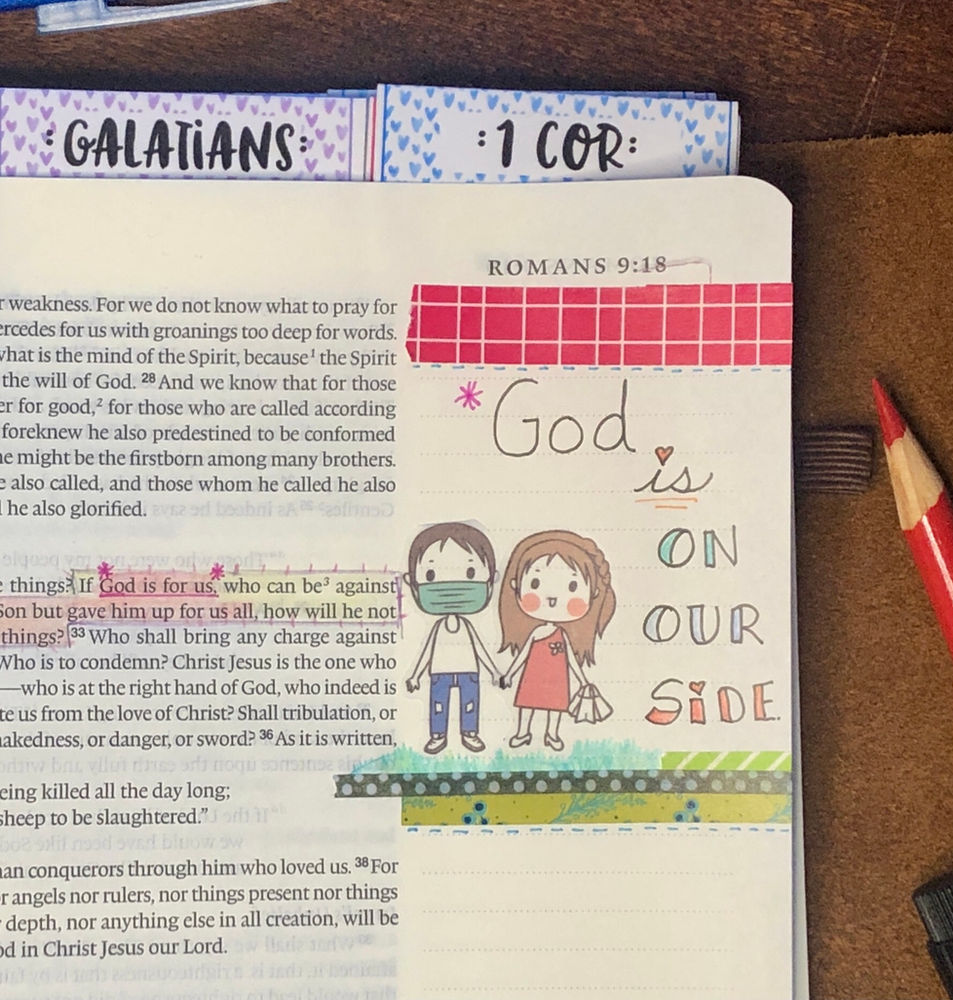 :GALATiANS:
:1 COR:
ROMANS 9:18
weakness. For we do not know what to pray for
ercedes for us with groanings too deep for words.
what is the mind of the Spirit, because¹ the Spirit
the will of God. ²⁸ And we know that for those
er for good,² for those who are called according
foreknew he also predestined to be conformed
he might be the firstborn among many brothers.
e also called, and those whom he called he also
he also glorified.
things? If God is for us, who can be³ against
Son but gave him up for us all, how will he not
things? ³³ Who shall bring any charge against
Who is to condemn? Christ Jesus is the one who
—who is at the right hand of God, who indeed is
te us from the love of Christ? Shall tribulation, or
nakedness, or danger, or sword? ³⁶ As it is written,
eing killed all the day long;
sheep to be slaughtered.”
an conquerors through him who loved us. ³⁸ For
r angels nor rulers, nor things present nor things
depth, nor anything else in all creation, will be
od in Christ Jesus our Lord.
*God
is
ON
OUR
SiDE.